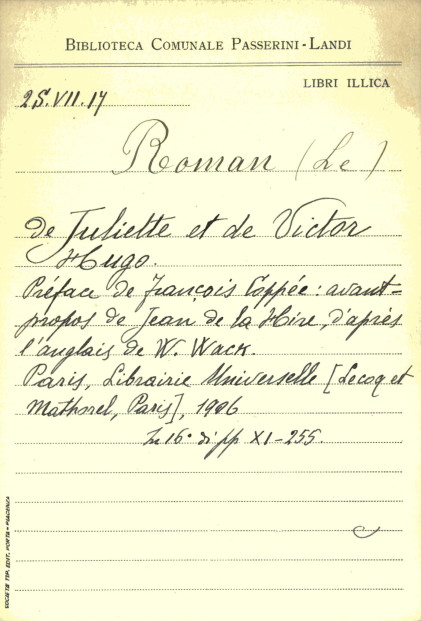 BIBLIOTECA COMUNALE PASSERINI-LANDI
LIBRI ILLICA
25.VII.17
Roman (Le)
de Juliette et de Victor
Hugo.
Préface de François Coppée: avant-
propos de Jean de la Hire, d'après
l'anglais de W. Wack.
Paris, Librairie Universelle [Lecoq et
Mathorel, Paris], 1906
In 16° di pp XI-255.
SOCIETÀ TIP. EDIT. PORTA - PIACENZA